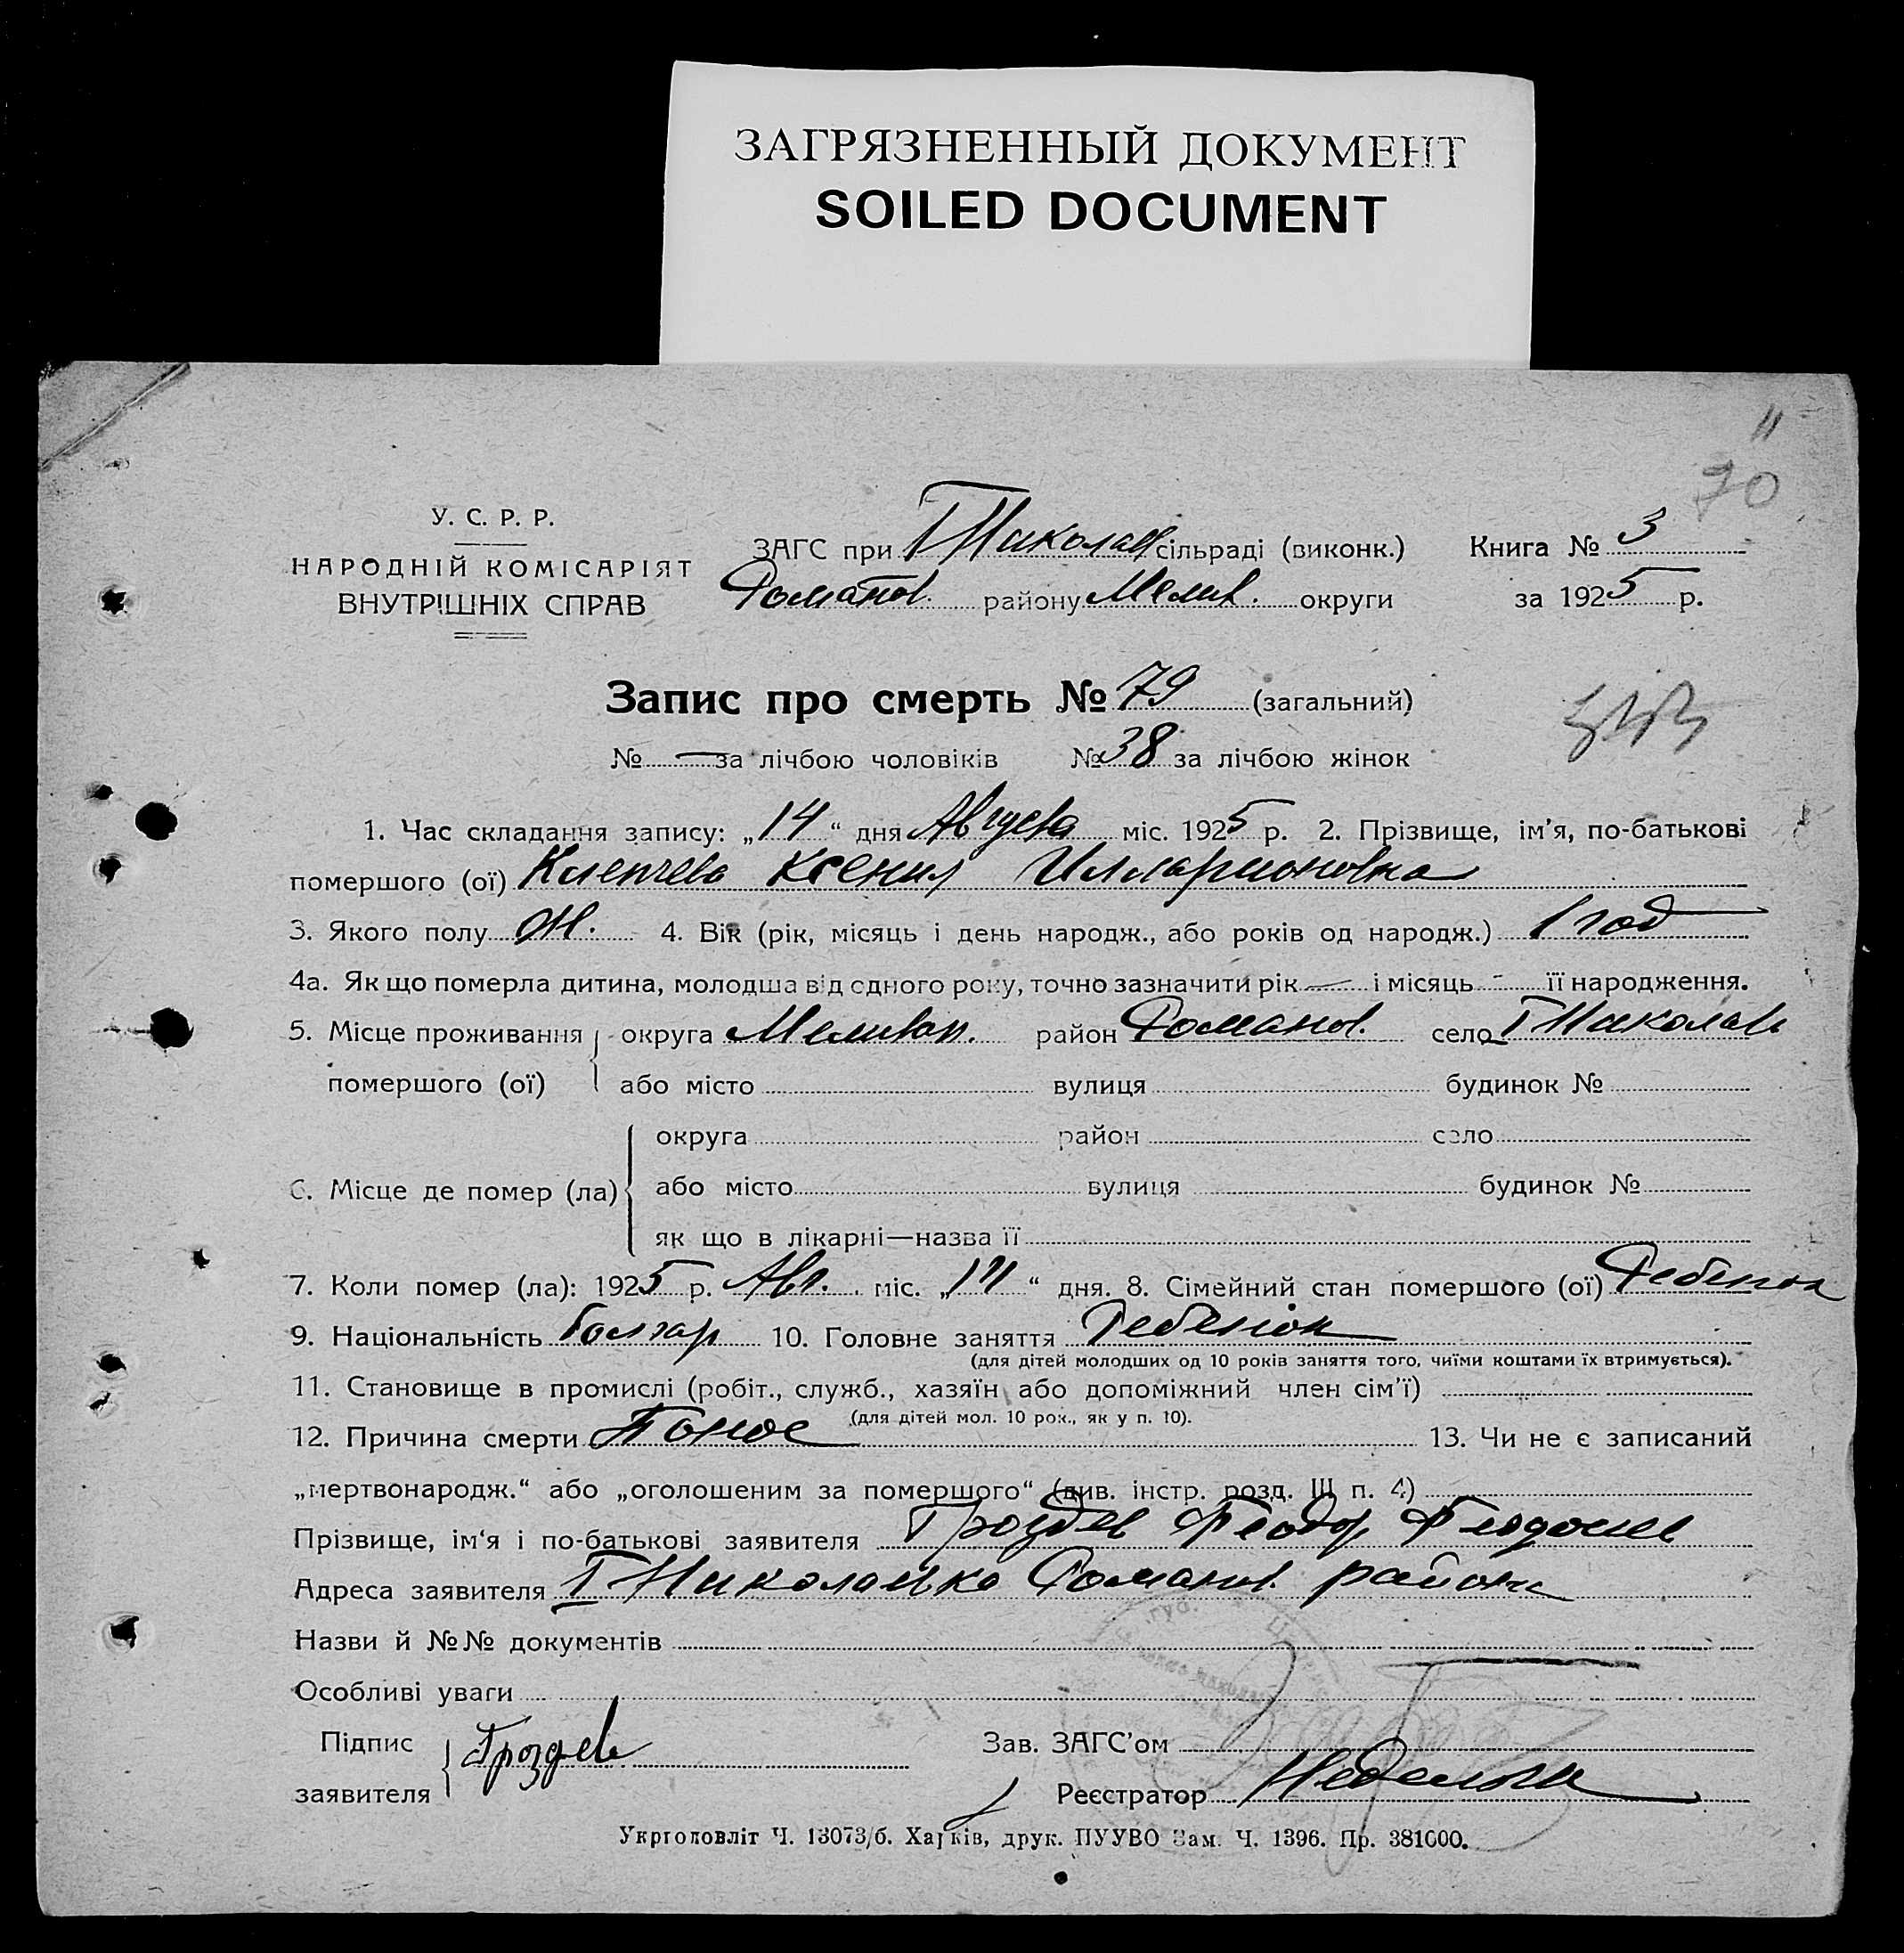 ЗАГРЯЗНЕННЫЙ ДОКУМЕНТ
SOILED DOCUMENT
"
70
У. С. Р. Р.
НАРОДНІЙ КОМІСАРІЯТ
ВНУТРІШНІХ СПРАВ
ЗАГС при ТНиколаев сільраді (виконк.) Книга № 3
Романов. району Мелит. округи за 1925 р.
Запис про смерть № 79 (загальний)
№ — за лічбою чоловіків № 38 за лічбою жінок
1. Час складання запису: „14“ дня Августа міс. 1925 р. 2. Прізвище, ім’я, по-батькові
помершого (ої) Клепчева Ксения Илларионовна
3. Якого полу Ж. 4. Вік (рік, місяць і день народж., або років од народж.) 1 год
4а. Як що померла дитина, молодша від одного року, точно зазначити рік — і місяць - її народження.
5. Місце проживання округа Мелитоп. район Романов. село ТНиколаев
помершого (ої) або місто вулиця будинок №
округа район село
6. Місце де помер (ла) або місто вулиця будинок №
як що в лікарні—назва її
7. Коли помер (ла): 1925 р. Авг. міс. „14“ дня. 8. Сімейний стан помершого (ої) Ребенок
9. Національність болгар 10. Головне заняття Ребенок
(для дітей молодших од 10 років заняття того, чиїми коштами їх втримується).
11. Становище в промислі (робіт., служб., хазяїн або допоміжний член сім’ї)
(для дітей мол. 10 рок., як у п. 10).
12. Причина смерти Понос 13. Чи не є записаний
„мертвонародж.“ або „оголошеним за помершого“ (див. інстр. розд. III п. 4)
Прізвище, ім‘я і по-батькові заявителя Гроздев Феодор Феодосиев
Адреса заявителя ТНиколаевка Романов. района
Назви й №№ документів
Особливі уваги
Підпис заявителя Гроздев
Зав. ЗАГС’ом
Реєстратор
Укрголовліт Ч. 13073/б. Харків, друк. ПУУВО Зам. Ч. 1396. Пр. 381000.